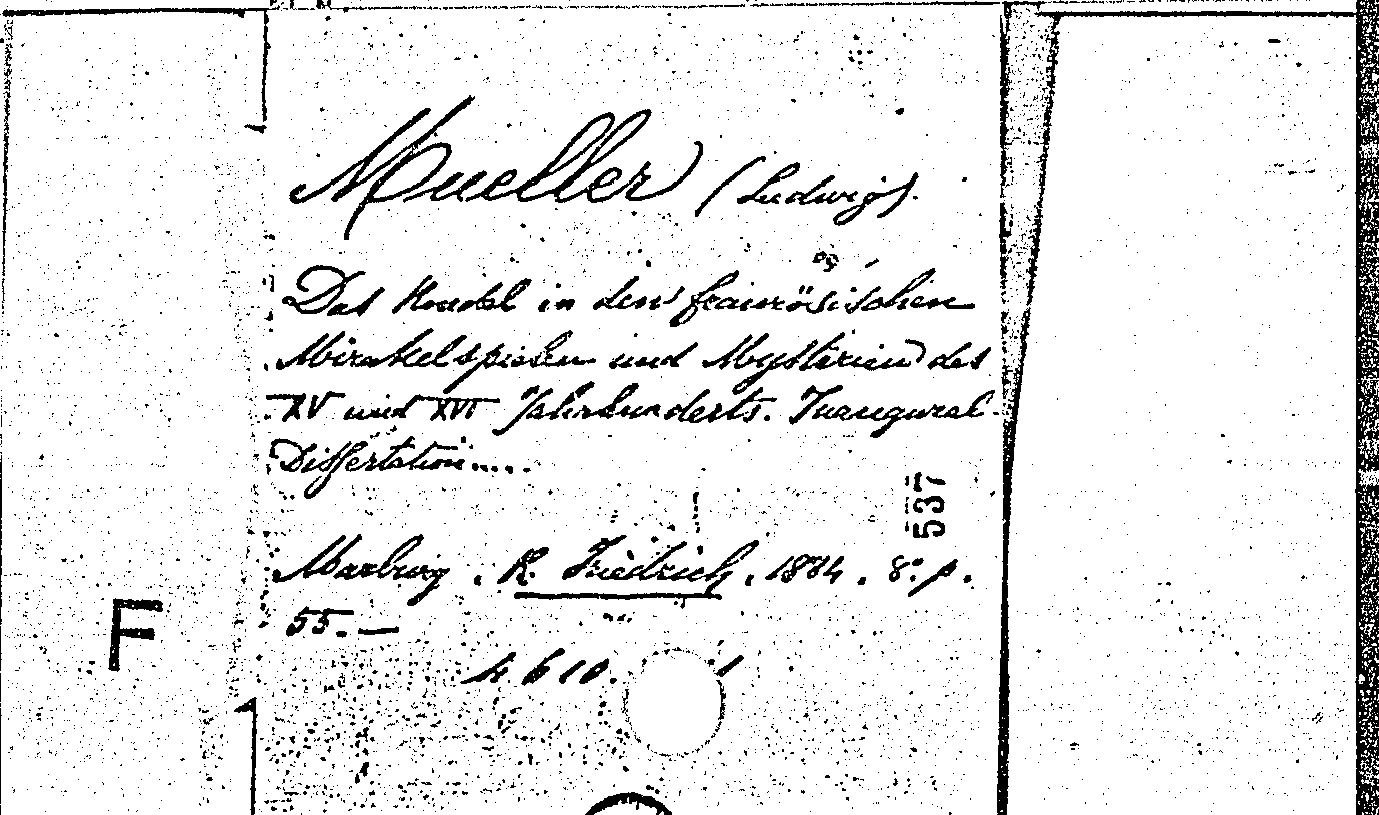 Mueller (Ludwig).
Das Rondel in den französischen
Mirakelspielen und Mysterien des
XV und XVI Jahrhunderts. Inaugural-
Dissertation....
537
Marburg. R. Friedrich. 1884. 8°. p.
55.—
4 610.
F